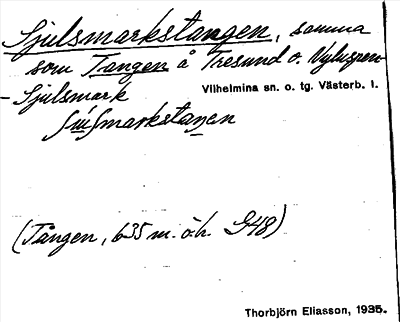 Sjulsmarkstangen, samma
som Tangen å Tresund o. Nyluspen
- Sjulsmark
Vilhelmina sn. o. tg. Västerb. l.
(Tången, 635 m. ö.h. G48)
Thorbjörn Eliasson, 1935.